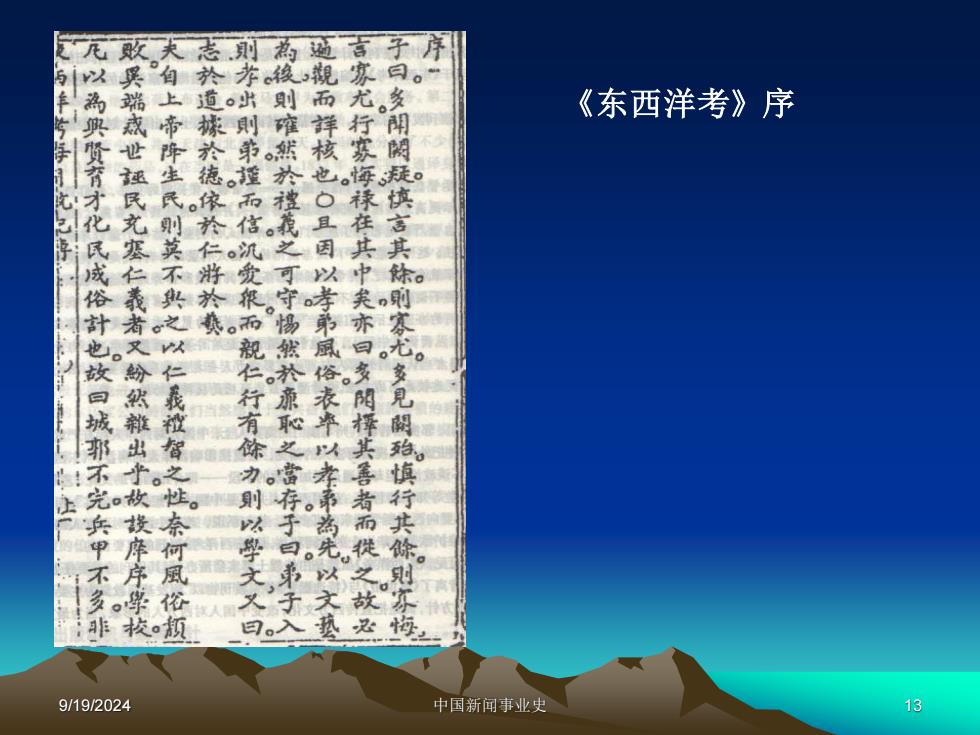 《东西洋考》序
序
子曰。多聞闕疑。慎言其餘。則寡尤。多見闕殆。慎行其餘。則寡悔。
言寡尤。行寡悔。祿在其中矣。亦曰。多聞擇其善者而從之。故必
遍觀而詳核也。〇且因以孝弟風俗表率。以孝弟為先。以文藝
為後。則確然於禮義之可守。惕然於廉恥之當存。子曰。弟子入
則孝。出則弟。謹而信。汎愛眾。而親仁。行有餘力則以學文。又曰。
志於道。據於德。依於仁。將於藝。
夫自上帝降生民。則莫不與之以仁義禮智之性。奈何風俗頹
敗。異端惑世誣民充塞仁義者。又紛然雜出乎。故設庠序學校。
凡以為興賢育才化民成俗計也。故曰城郭不完。兵甲不多。非
9/19/2024
中国新闻事业史
13